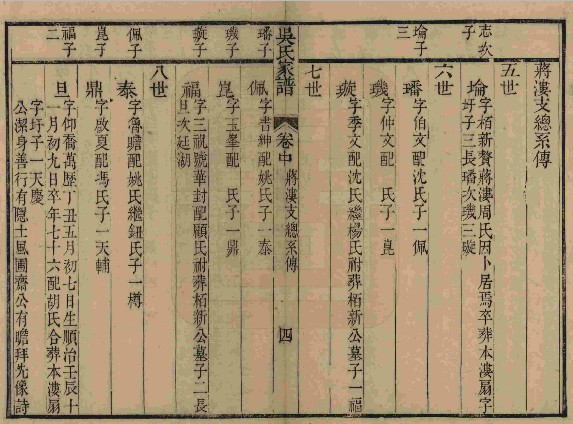 蔣漊支總系傳
五世
志次子
埨
字栢新贅蔣漊周氏因卜居焉卒葬本漊扇字
圩子三長璠次璣三璇
六世
埨子三
璠
字伯文配沈氏子一佩
璣
字仲文配 氏子一崑
璇
字季文配沈氏繼楊氏祔葬栢新公墓子一福
七世
吳氏家譜
卷中
蔣漊支總系傳
四
璠子
佩
字書紳配姚氏子一泰
璣子
崑
字玉峯配 氏子一鼎
璇子
福
字三祝號華封配顧氏祔葬栢新公墓子二長
旦次廷湖
八世
佩子
泰
字魯瞻配姚氏繼鈕氏子一樽
崑子
鼎
字啟夏配馮氏子一天輔
福子二
旦
字仰喬萬歷丁丑五月初七日生順治壬辰十
一月初九日卒年七十六配胡氏合葬本漊扇
字圩子一天慶
公潔身善行有隱士風圃齋公有瞻拜先像詩